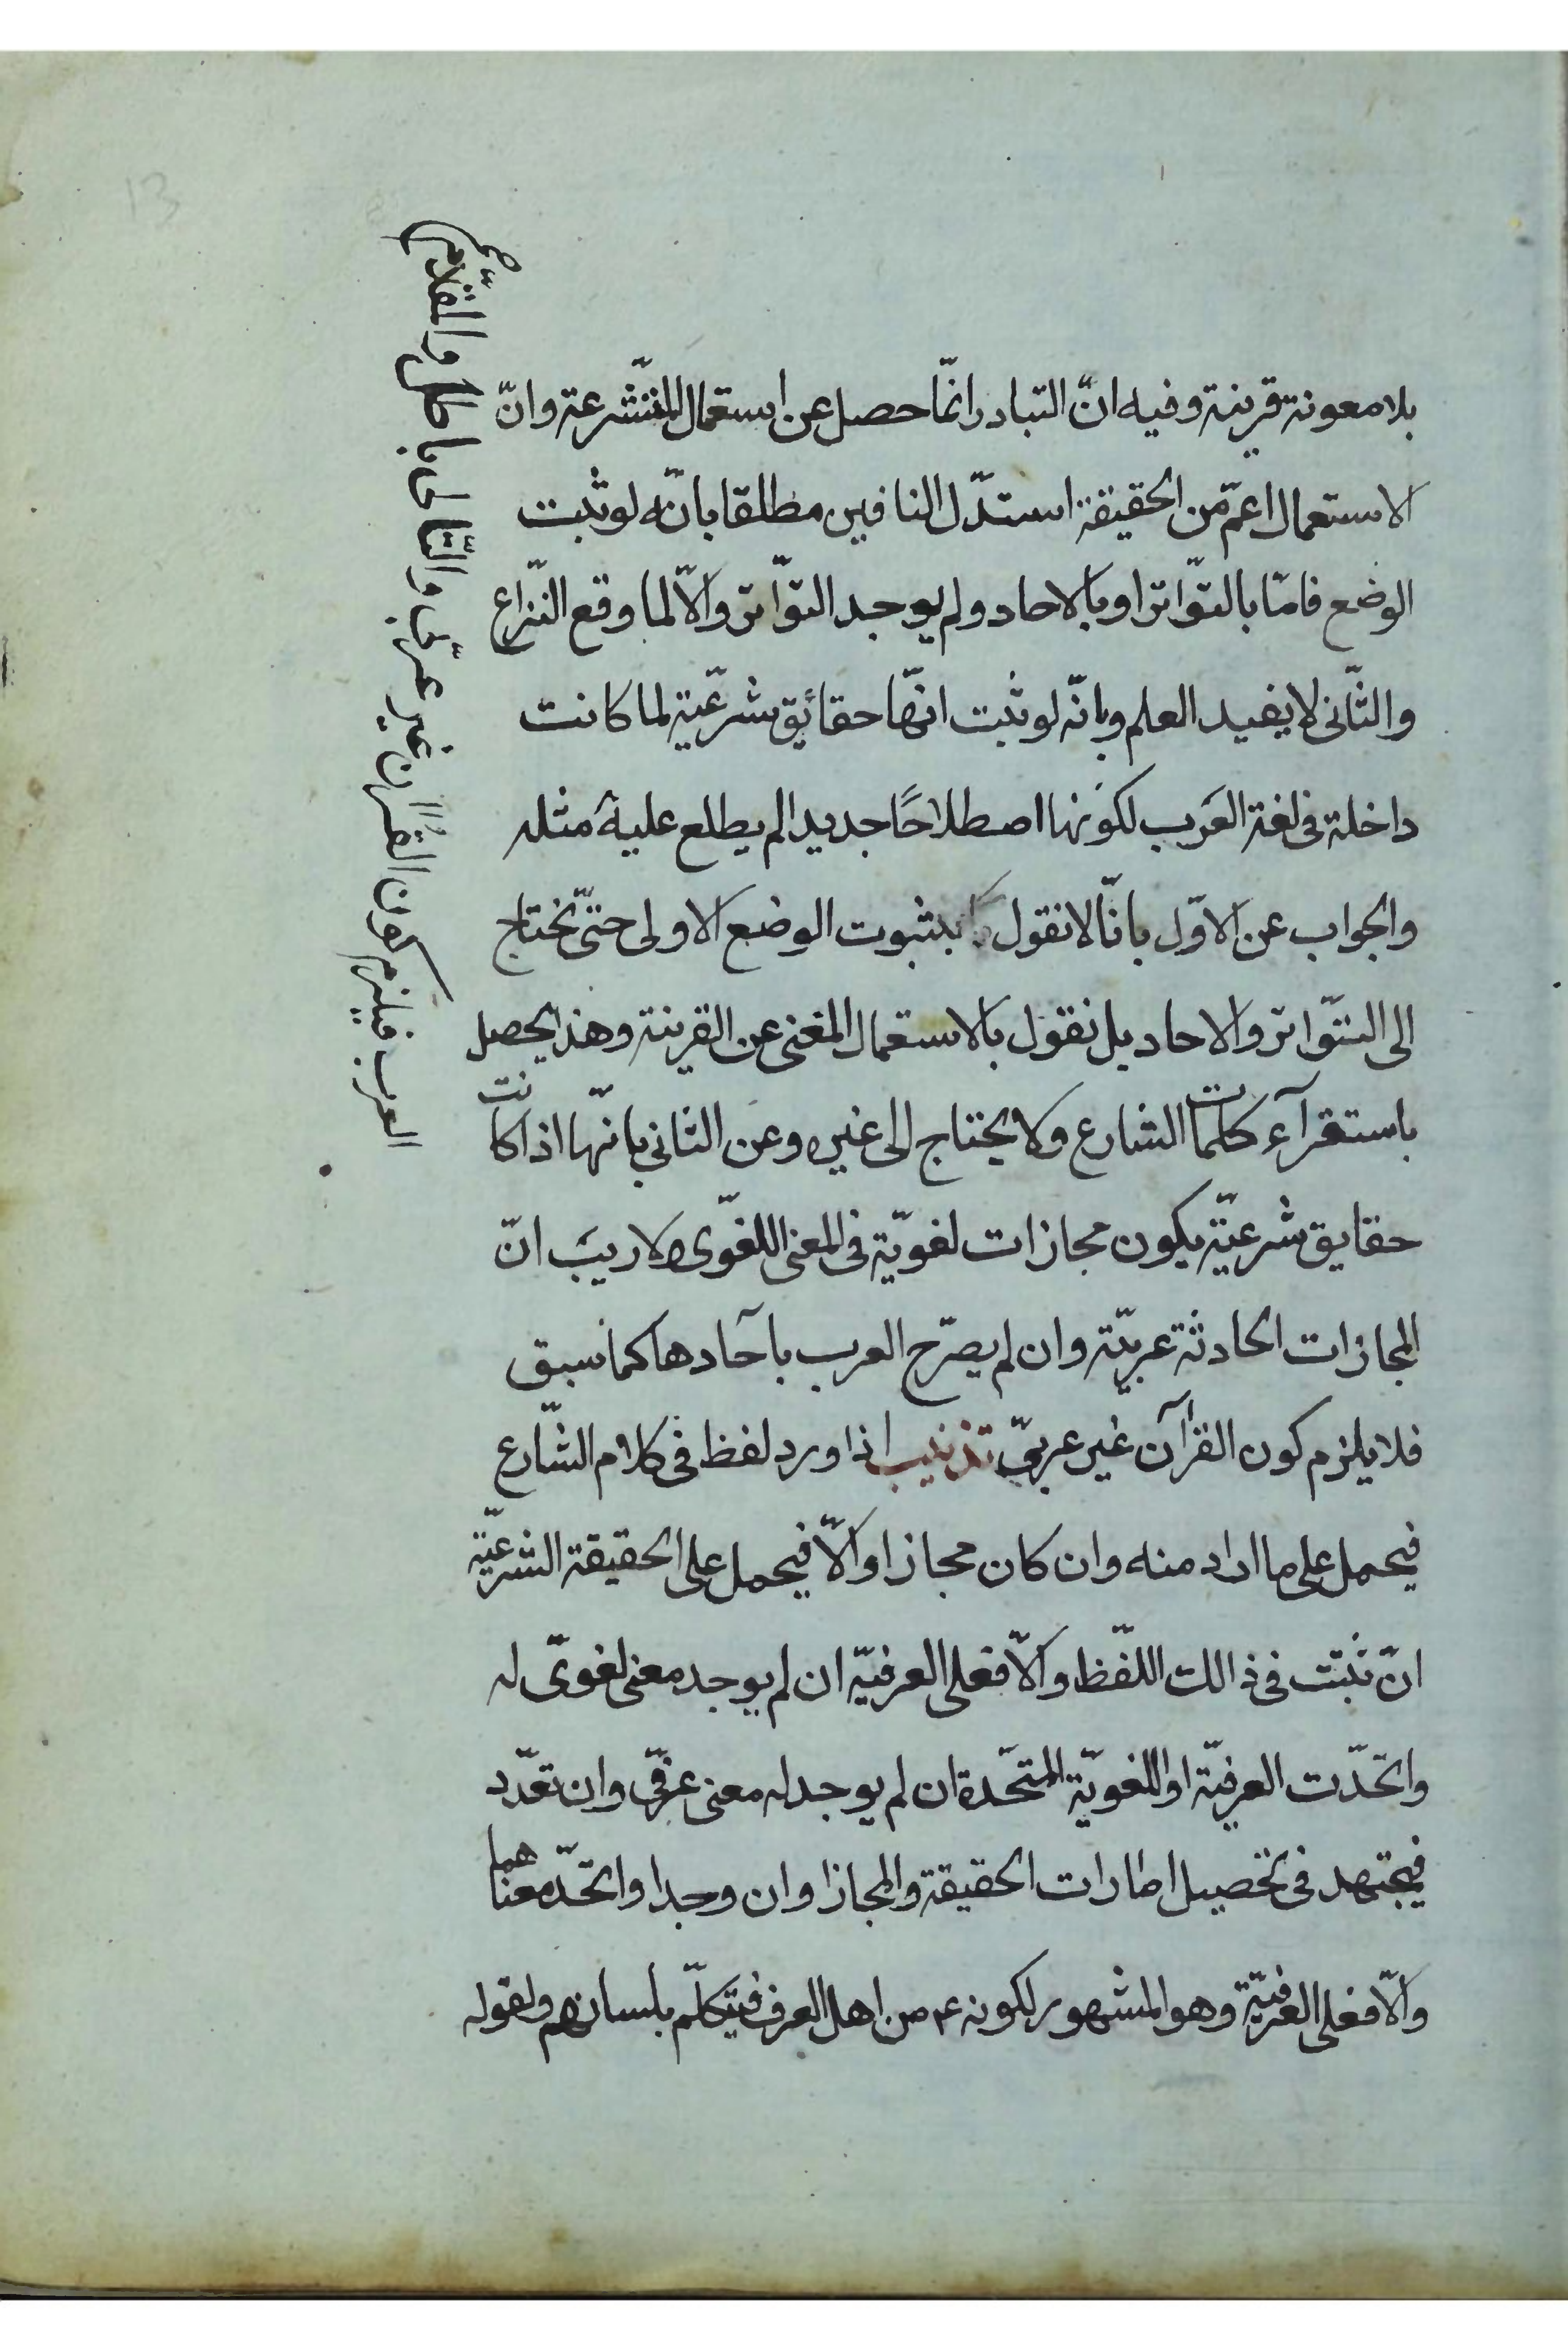 بلا معونة قرينة وفيه انّ التبادر انّما حصل عن استعمال المتشّرعة وانّ
الاستعمال اعمّ من الحقيقة استدّل النافين مطلقا بانّه لو ثبت
الوضع فامّا بالتوّاتر او بالاحاد ولم يوجد التوّاتر والّا لما وقع النّزاع
والثّانى لا يفيد العلم وبانّه لو ثبت انّها حقائق شرعيّة لما كانت
داخلة فى لغة العَرب لكونها اصطلاحًا جديدا لم يطلع عليه مثله
العرب فيلزم كون القرآن غير عربّى والتّالى باطل والمقدّم صح
والجواب عن الاوّل بانّا لا نقول بثبوت الوضع الاولى حتىّ نحتاج
الى التوّاتر والاحاد بل نقول بالاستعمال المغنى عن القرينة وهذا يحصل
باستقرآء كلمات الشارع ولا يحتاج الى غيره وعن الثانى بانّها اذا كانت
حقايق شرعيّة يكون مجازات لغويّة فى المعنى اللغوّى ولا ريبَ انّ
المجازات الحادثة عربيّة وان لم يصرّح العرب بآحادها كما سبق
فلا يلزم كون القرآن غير عربىّ تذنيب اذا ورد لفظ فى كلام الشّارع
فيحمل على ما اراد منه وان كان مجازا والّا فيحمل على الحقيقة الشرعيّة
انّ ثبتت فى ذالك اللّفظ والّا فعلى العرفيّة ان لم يوجد معنى لغوىّ له
واتحّدت العرفيّة او اللغويّة المتحّدة ان لم يوجد له معنى عرفىّ وان تعدّد
فيجتهد فى تحصيل امارات الحقيقة والمجاز او ان وجدا واتحّد معناهما
والّا فعلى العرفيّة وهو المشهور لكونه ع من اهل العرف فيتكلّم بلسانهم ولقوله